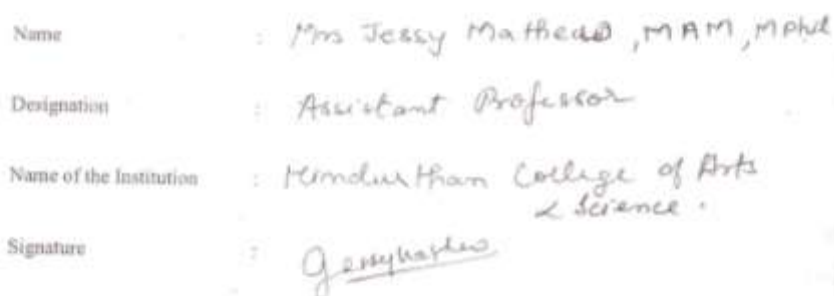 Name : Mrs Jessy Mathews, MAM, MPhil
Designation : Assistant Professor
Name of the Institution : Hindusthan College of Arts
& Science.
Signature :